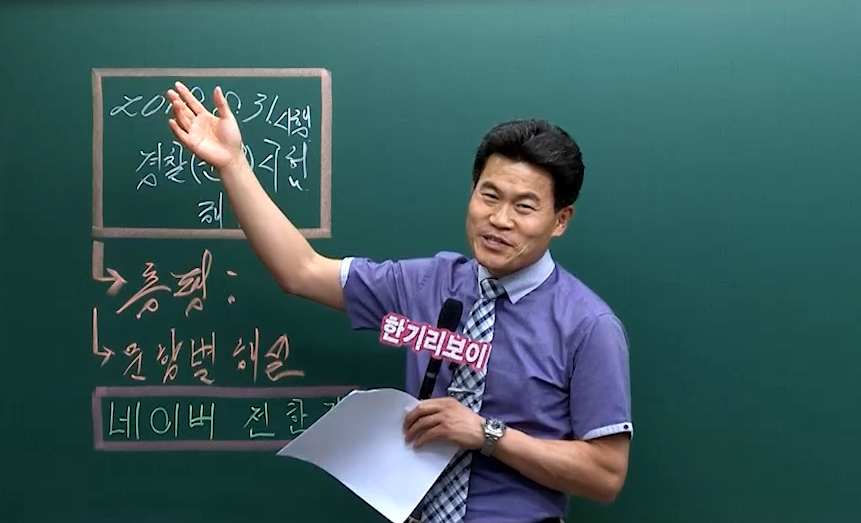 31. 시행
경찰( )시험
총평:
문항별 해설
네이버 전한
한기리보이